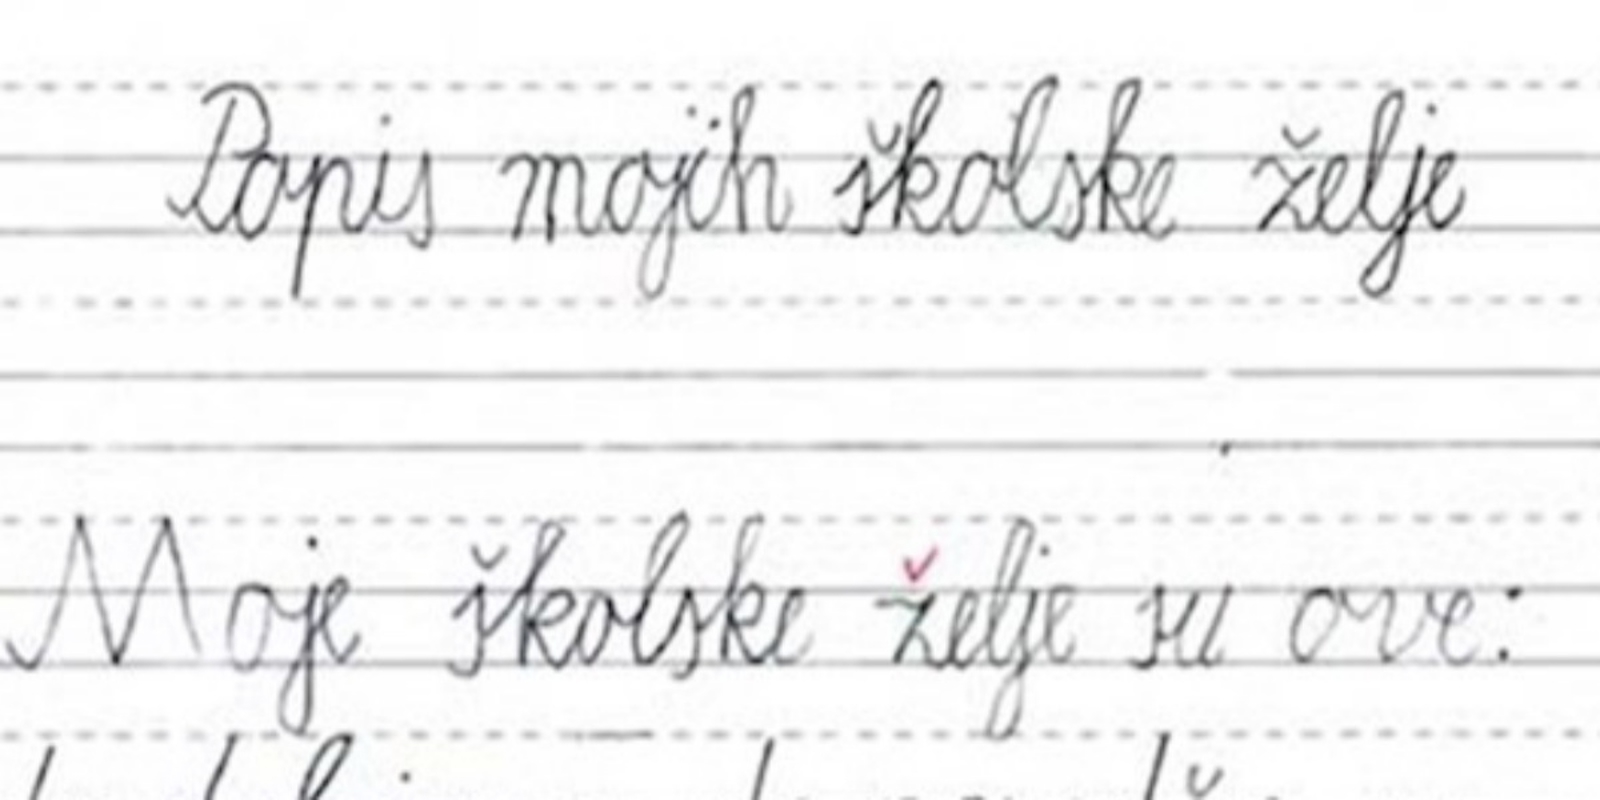 Popis mojih školske želje
Moje školske želje su ove: